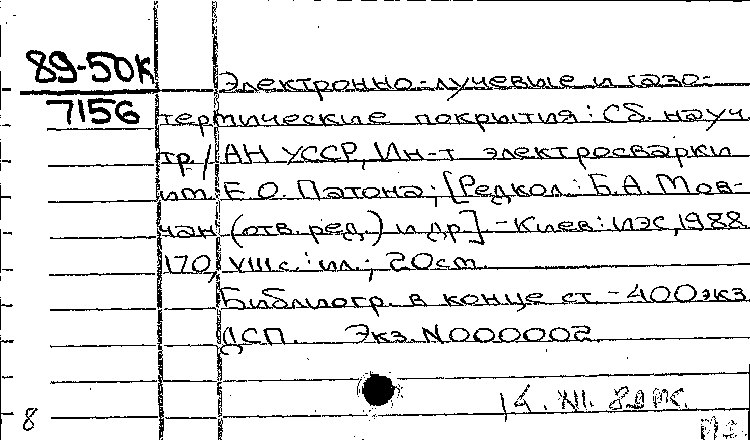 89-50К
7156
Электронно-лучевые и газо-
термические покрытия: Сб. науч.
тр. / АН УССР, Ин-т электросварки
им. Е.О. Патона; [Редкол.: Б.А. Мов-
чан (отв. ред.) и др.] - Киев: ИЭС, 1988
170, VIII с.: ил.; 20 cm.
Библиогр. в конце ст. - 400 экз
ДСП. Экз. N000002.
14. XII. 89
8